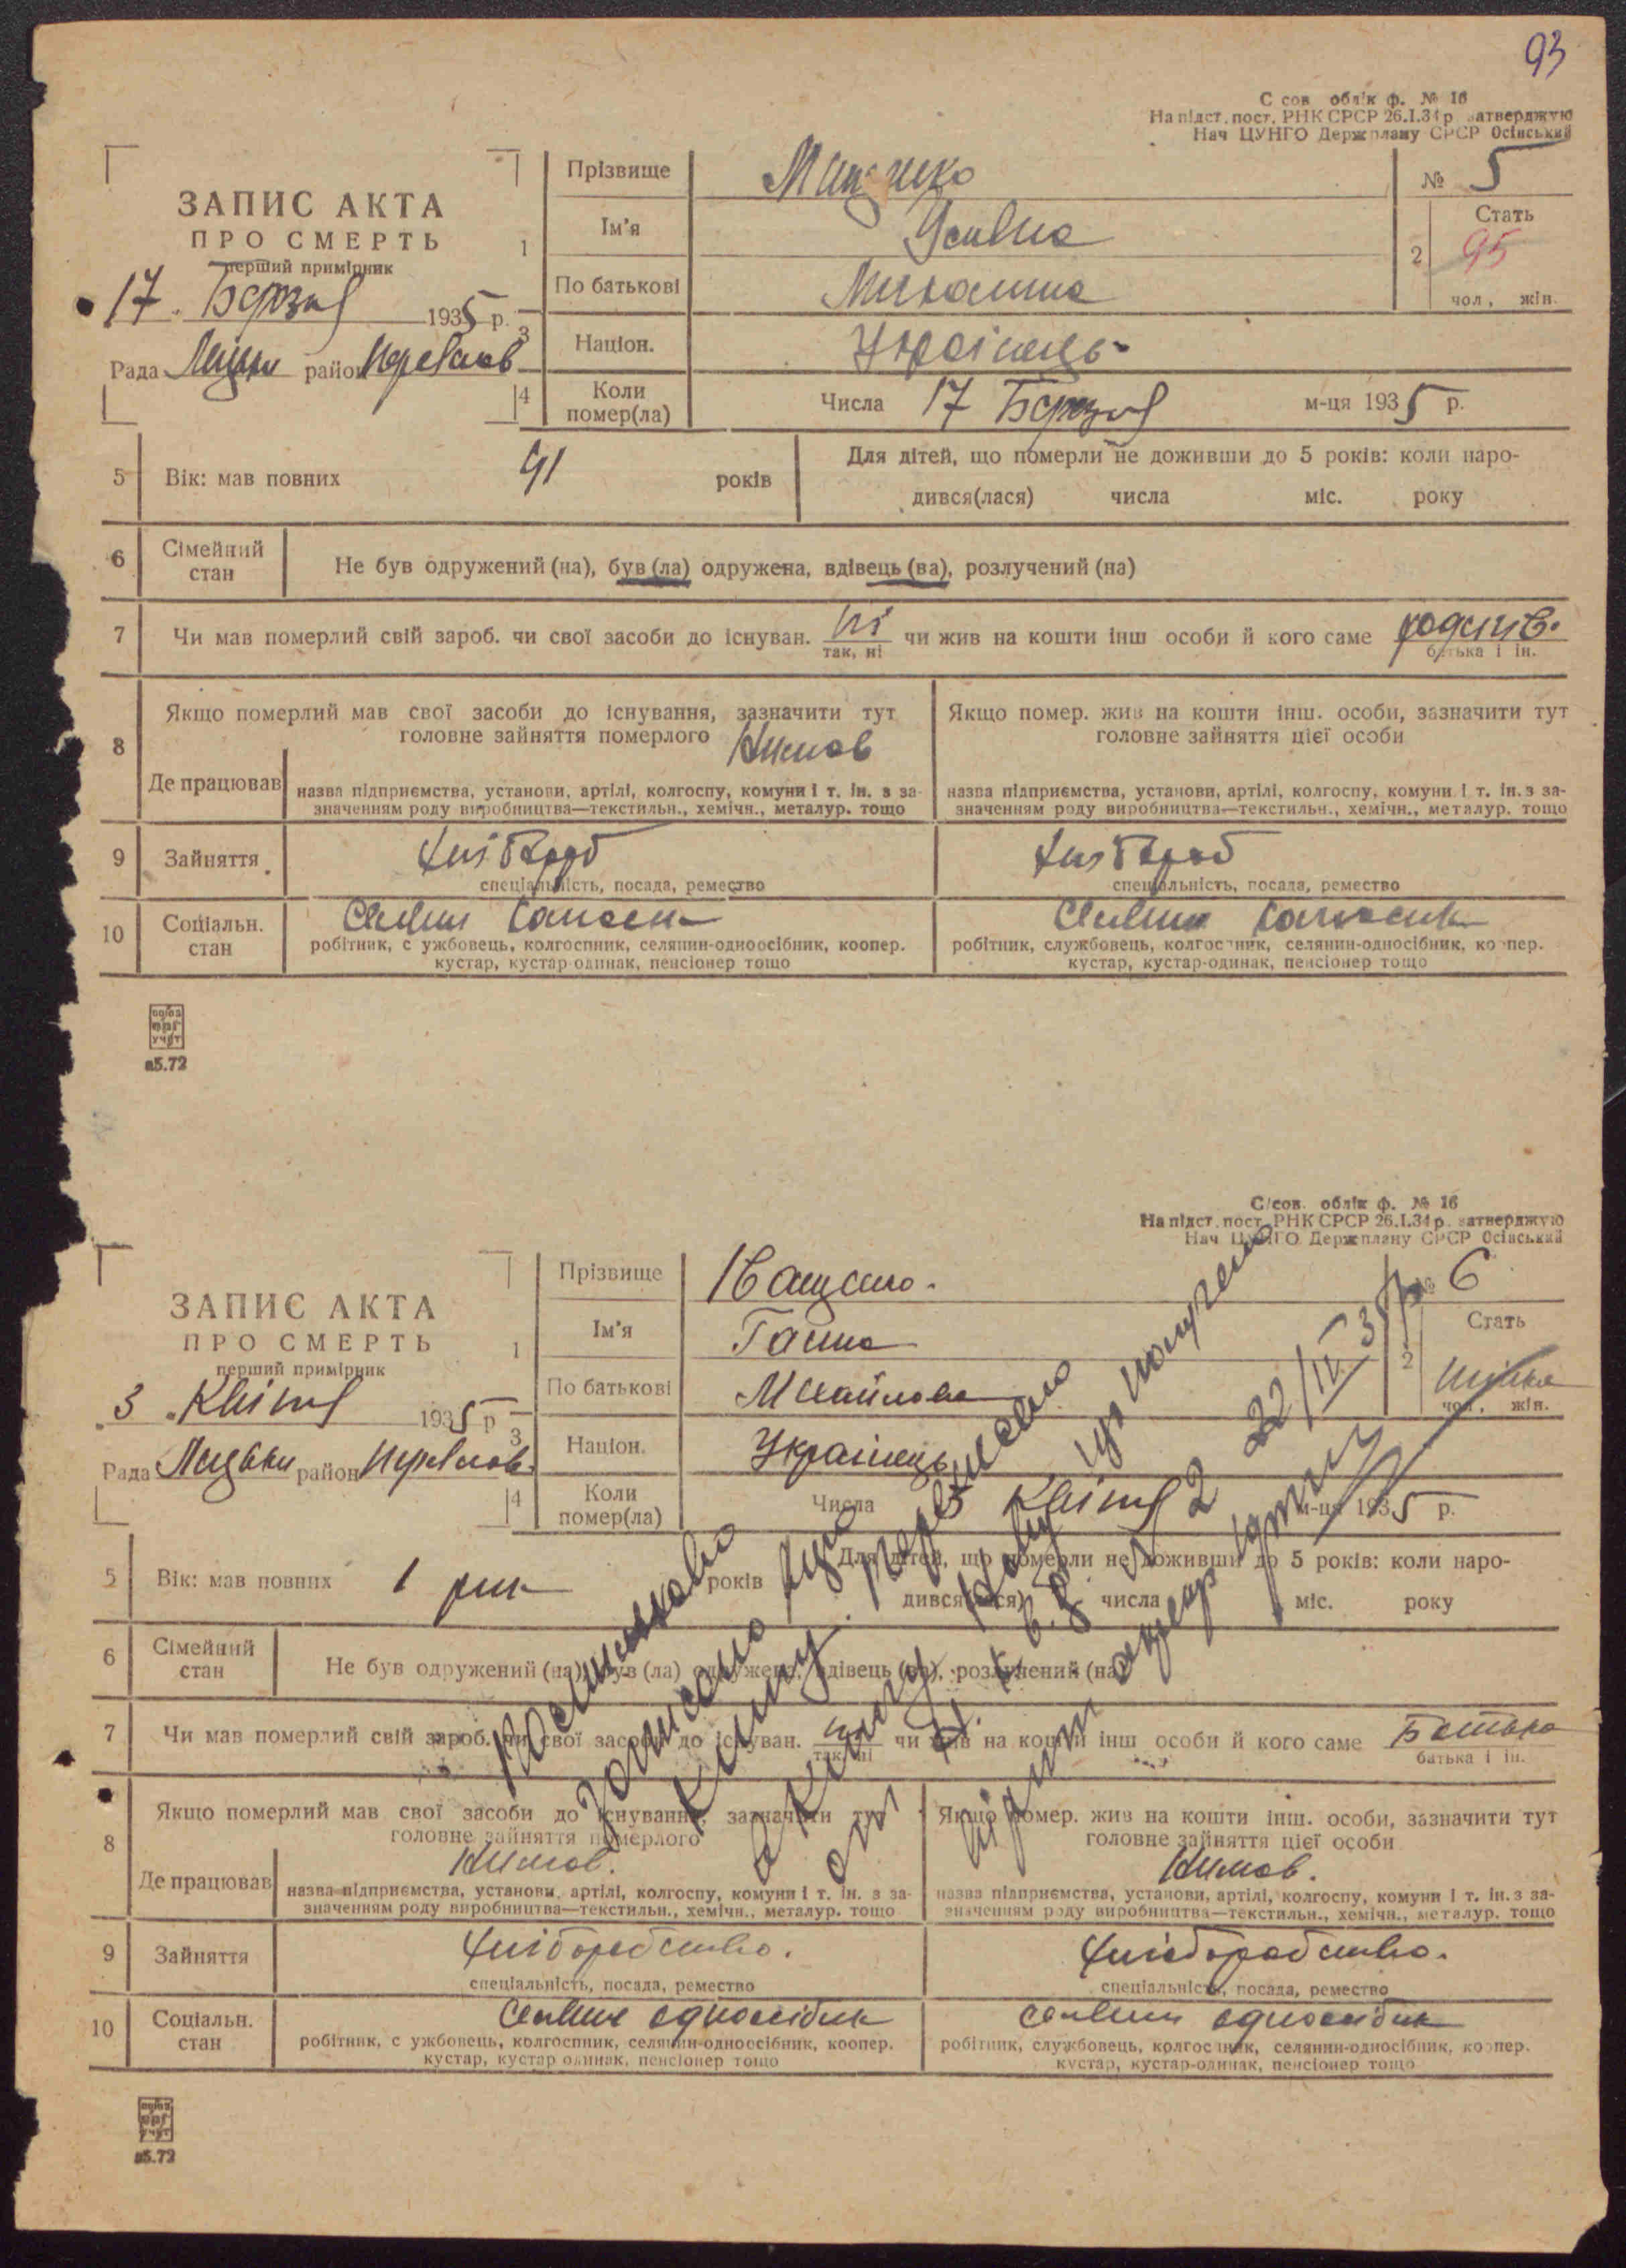 93
С сов облік ф. № 16
На підст. пост. РНК СРСР 26.I.34 р затверджую
Нач ЦУНГО Держплану СРСР Осінський
ЗАПИС АКТА
ПРО СМЕРТЬ
перший примірник
17 Березня 1935 р.
Рада район
1 Прізвище
№ 5
Ім'я
2 Стать
95
чол, жін.
По батькові
3 Націон. Українець
4 Коли помер(ла) Числа 17 Березня м-ця 1935 р.
5 Вік: мав повних 91 років
Для дітей, що померли не доживши до 5 років: коли наро-
дився(лася) числа міс. року
6 Сімейний стан Не був одружений (на), був (ла) одружена, вдівець (ва), розлучений (на)
7 Чи мав померлий свій зароб. чи свої засоби до існуван. ні чи жив на кошти інш особи й кого саме
так, ні
батька і ін.
8 Якщо померлий мав свої засоби до існування, зазначити тут
головне зайняття померлого
Якщо помер. жив на кошти інш. особи, зазначити тут
головне зайняття цієї особи
Де працював
назва підприємства, установи, артілі, колгоспу, комуни і т. ін. з за-
значенням роду виробництва—текстильн., хемічн., металур. тощо
назва підприємства, установи, артілі, колгоспу, комуни і т. ін. з за-
значенням роду виробництва—текстильн., хемічн., металур. тощо
9 Зайняття
спеціальність, посада, ремество
спеціальність, посада, ремество
10 Соціальн. стан
робітник, с ужбовець, колгоспник, селянин-одноосібник, коопер.
кустар, кустар одинак, пенсіонер тощо
робітник, службовець, колгоспник, селянин-односібник, коопер.
кустар, кустар-одинак, пенсіонер тощо
а5.72
С/сов. облік ф. № 16
На підст. пост. РНК СРСР 26.I.34 р. затверджую
Нач ЦУНГО Держплану СРСР Осінський
ЗАПИС АКТА
ПРО СМЕРТЬ
перший примірник
3 Квітня 1935 р
Рада район
1 Прізвище Іващенко.
№ 6
Ім'я Ганна
2 Стать
жінка
чол, жін.
По батькові Михайлова
3 Націон. Українець
4 Коли помер(ла) Числа Квітня м-ця 1935 р.
5 Вік: мав повних 1 рик років
Для дітей, що померли не доживши до 5 років: коли наро-
дився(лася) числа міс. року
6 Сімейний стан Не був одружений (на), був (ла) одружена, вдівець (ва), розлучений (на)
7 Чи мав померлий свій зароб. чи свої засоби до існуван. ні чи жив на кошти інш особи й кого саме Батька
так, ні
батька і ін.
8 Якщо померлий мав свої засоби до існування, зазначити тут
головне зайняття померлого
Якщо помер. жив на кошти інш. особи, зазначити тут
головне зайняття цієї особи
Де працював
назва підприємства, установи, артілі, колгоспу, комуни і т. ін. з за-
значенням роду виробництва—текстильн., хемічн., металур. тощо
назва підприємства, установи, артілі, колгоспу, комуни і т. ін. з за-
значенням роду виробництва—текстильн., хемічн., металур. тощо
9 Зайняття хліборобство. хліборобство.
спеціальність, посада, ремество
спеціальність, посада, ремество
10 Соціальн. стан селянин односібник селянин односібник
робітник, с ужбовець, колгоспник, селянин-одноосібник, коопер.
кустар, кустар одинак, пенсіонер тощо
робітник, службовець, колгоспник, селянин-односібник, коопер.
кустар, кустар-одинак, пенсіонер тощо
Помилково
записано
книгу переписано
книгу
22/IV 35 р
а5.72